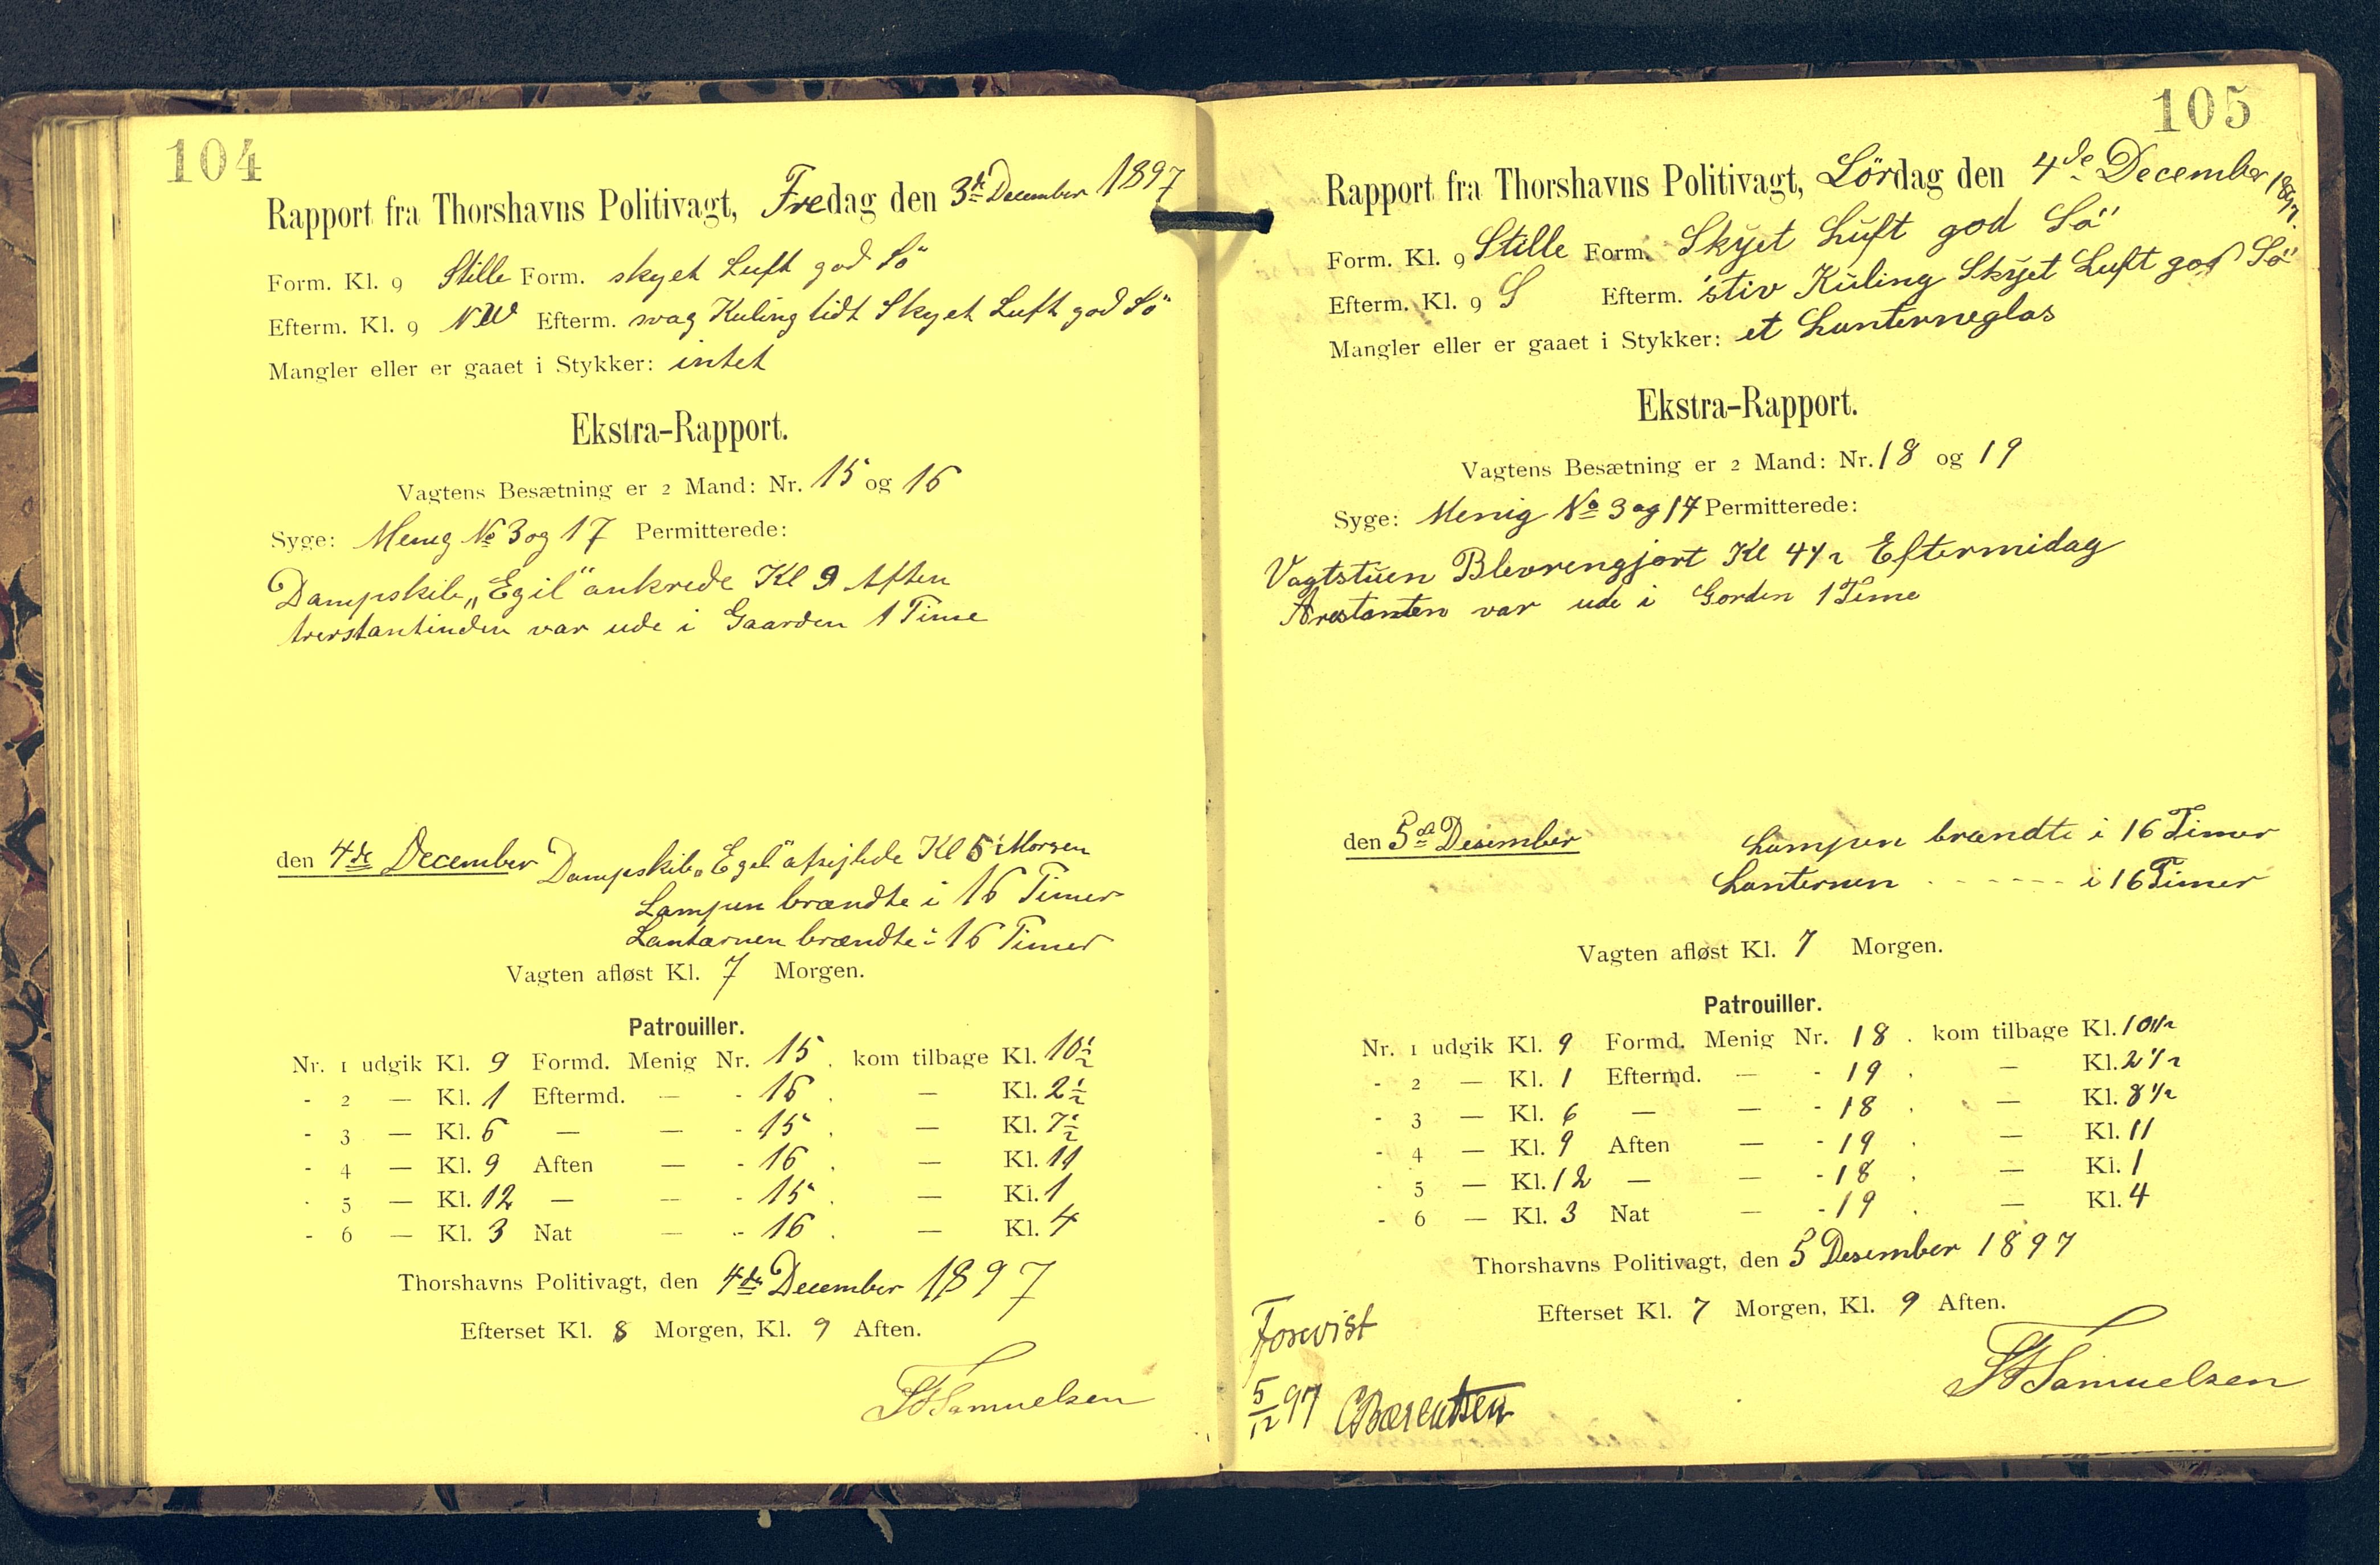 104
Rapport fra Thorshavns Politivagt, Fredag den 3de December 1897
Form. Kl. 9 Stille Form. skyet Luft god Sö
Efterm. Kl. 9 NW Efterm. svag Kuling lidt Skyet Luft god Sö
Mangler eller er gaaet i Stykker: intet
Ekstra-Rapport.
Vagtens Besætning er 2 Mand: Nr. 15 og 16
Syge: Menig No 3 og 17 Permitterede:
Dampskib „Egil" ankrede Kl 9 Aften
var ude i Gaarden 1 Time
den 4de December Dampskib „Egil" afsejlede Kl 5 i Morgen
Lampen brændte i 16 Timer
Lantarnen brændte i 16 Timer
Vagten afløst Kl. 7 Morgen.
Patrouiller.
Nr. 1 udgik Kl. 9 Formd. Menig Nr. 15 . kom tilbage Kl. 10½
- 2 — Kl. 1 Eftermd. — - 16 . — Kl. 2½
- 3 — Kl. 6 — — - 15 . — Kl. 7½
- 4 — Kl. 9 Aften — - 16 . — Kl. 11
- 5 — Kl. 12 — — - 15 . — Kl. 1
- 6 — Kl. 3 Nat — - 16 . — Kl. 4
Thorshavns Politivagt, den 4de December 1897
Efterset Kl. 8 Morgen, Kl. 9 Aften.
Samuelsen
105
Rapport fra Thorshavns Politivagt, Lördag den 4de December 1897.
Form. Kl. 9 Stille Form. Skyet Luft god Sö
Efterm. Kl. 9 S Efterm. stiv Kuling Skyet Luft god Sö
Mangler eller er gaaet i Stykker: et Lanterneglas
Ekstra-Rapport.
Vagtens Besætning er 2 Mand: Nr. 18 og 19
Syge: Menig No 3 og 17 Permitterede:
Vagtstuen Blevrengjort Kl 4½ Eftermidag
Arestanten var ude i Gorden 1 Time
den 5de Desember Lampen brændte i 16 Timer
Lanternen - - - - - - i 16 Timer
Vagten afløst Kl. 7 Morgen.
Patrouiller.
Nr. 1 udgik Kl. 9 Formd. Menig Nr. 18 . kom tilbage Kl. 10½
- 2 — Kl. 1 Eftermd. — - 19 . — Kl. 2½
- 3 — Kl. 6 — — - 18 . — Kl. 8½
- 4 — Kl. 9 Aften — - 19 . — Kl. 11
- 5 — Kl. 12 — — - 18 . — Kl. 1
- 6 — Kl. 3 Nat — - 19 . — Kl. 4
Thorshavns Politivagt, den 5 Desember 1897
Efterset Kl. 7 Morgen, Kl. 9 Aften.
Samuelsen
Forevist
5/12 97 CBærentsen